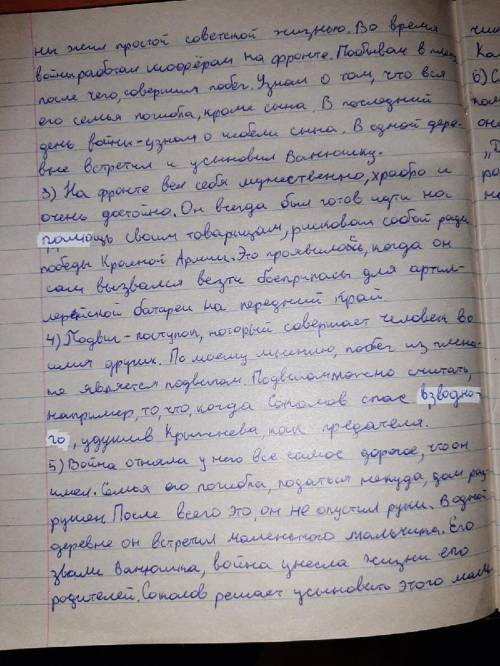 ны жил простой советской жизнью. Во время
войны работал шофёрам на фронте. Побывал в плену
после чего, совершил побег. Узнал о том, что вся
его семья погибла, кроме сына. В последний
день войны - узнал о гибели сына. В одной дере-
вне встретил и усыновил Ванюшку.
3) На фронте вел себя мужественно, храбро и
очень достойно. Он всегда был готов идти на
помощь своим товарищам, рисковал собой ради
победы Красной Армии. Это проявилось, когда он
сам вызвался везти боеприпасы для артил-
лерейской батареи на передний край
4) Подвиг - поступок, который совершает человек во
имя других. По моему мнению, побег из плена -
не является подвигом. Подвигом можно считать,
например, то, что, когда Соколов спас взводно-
го, удушив Крыжнева, как предателя.
5) Война отняла у него все самое дорогое, что он
имел. Семья его погибла, податься некуда, дом раз-
рушен. После всего это, он не опустил руки. В одной
деревне он встретил маленького мальчика. Его
звали Ванюшка, война унесла жизни его
родителей. Соколов решает усыновить этого маль-
чи
Ка
6) С
они